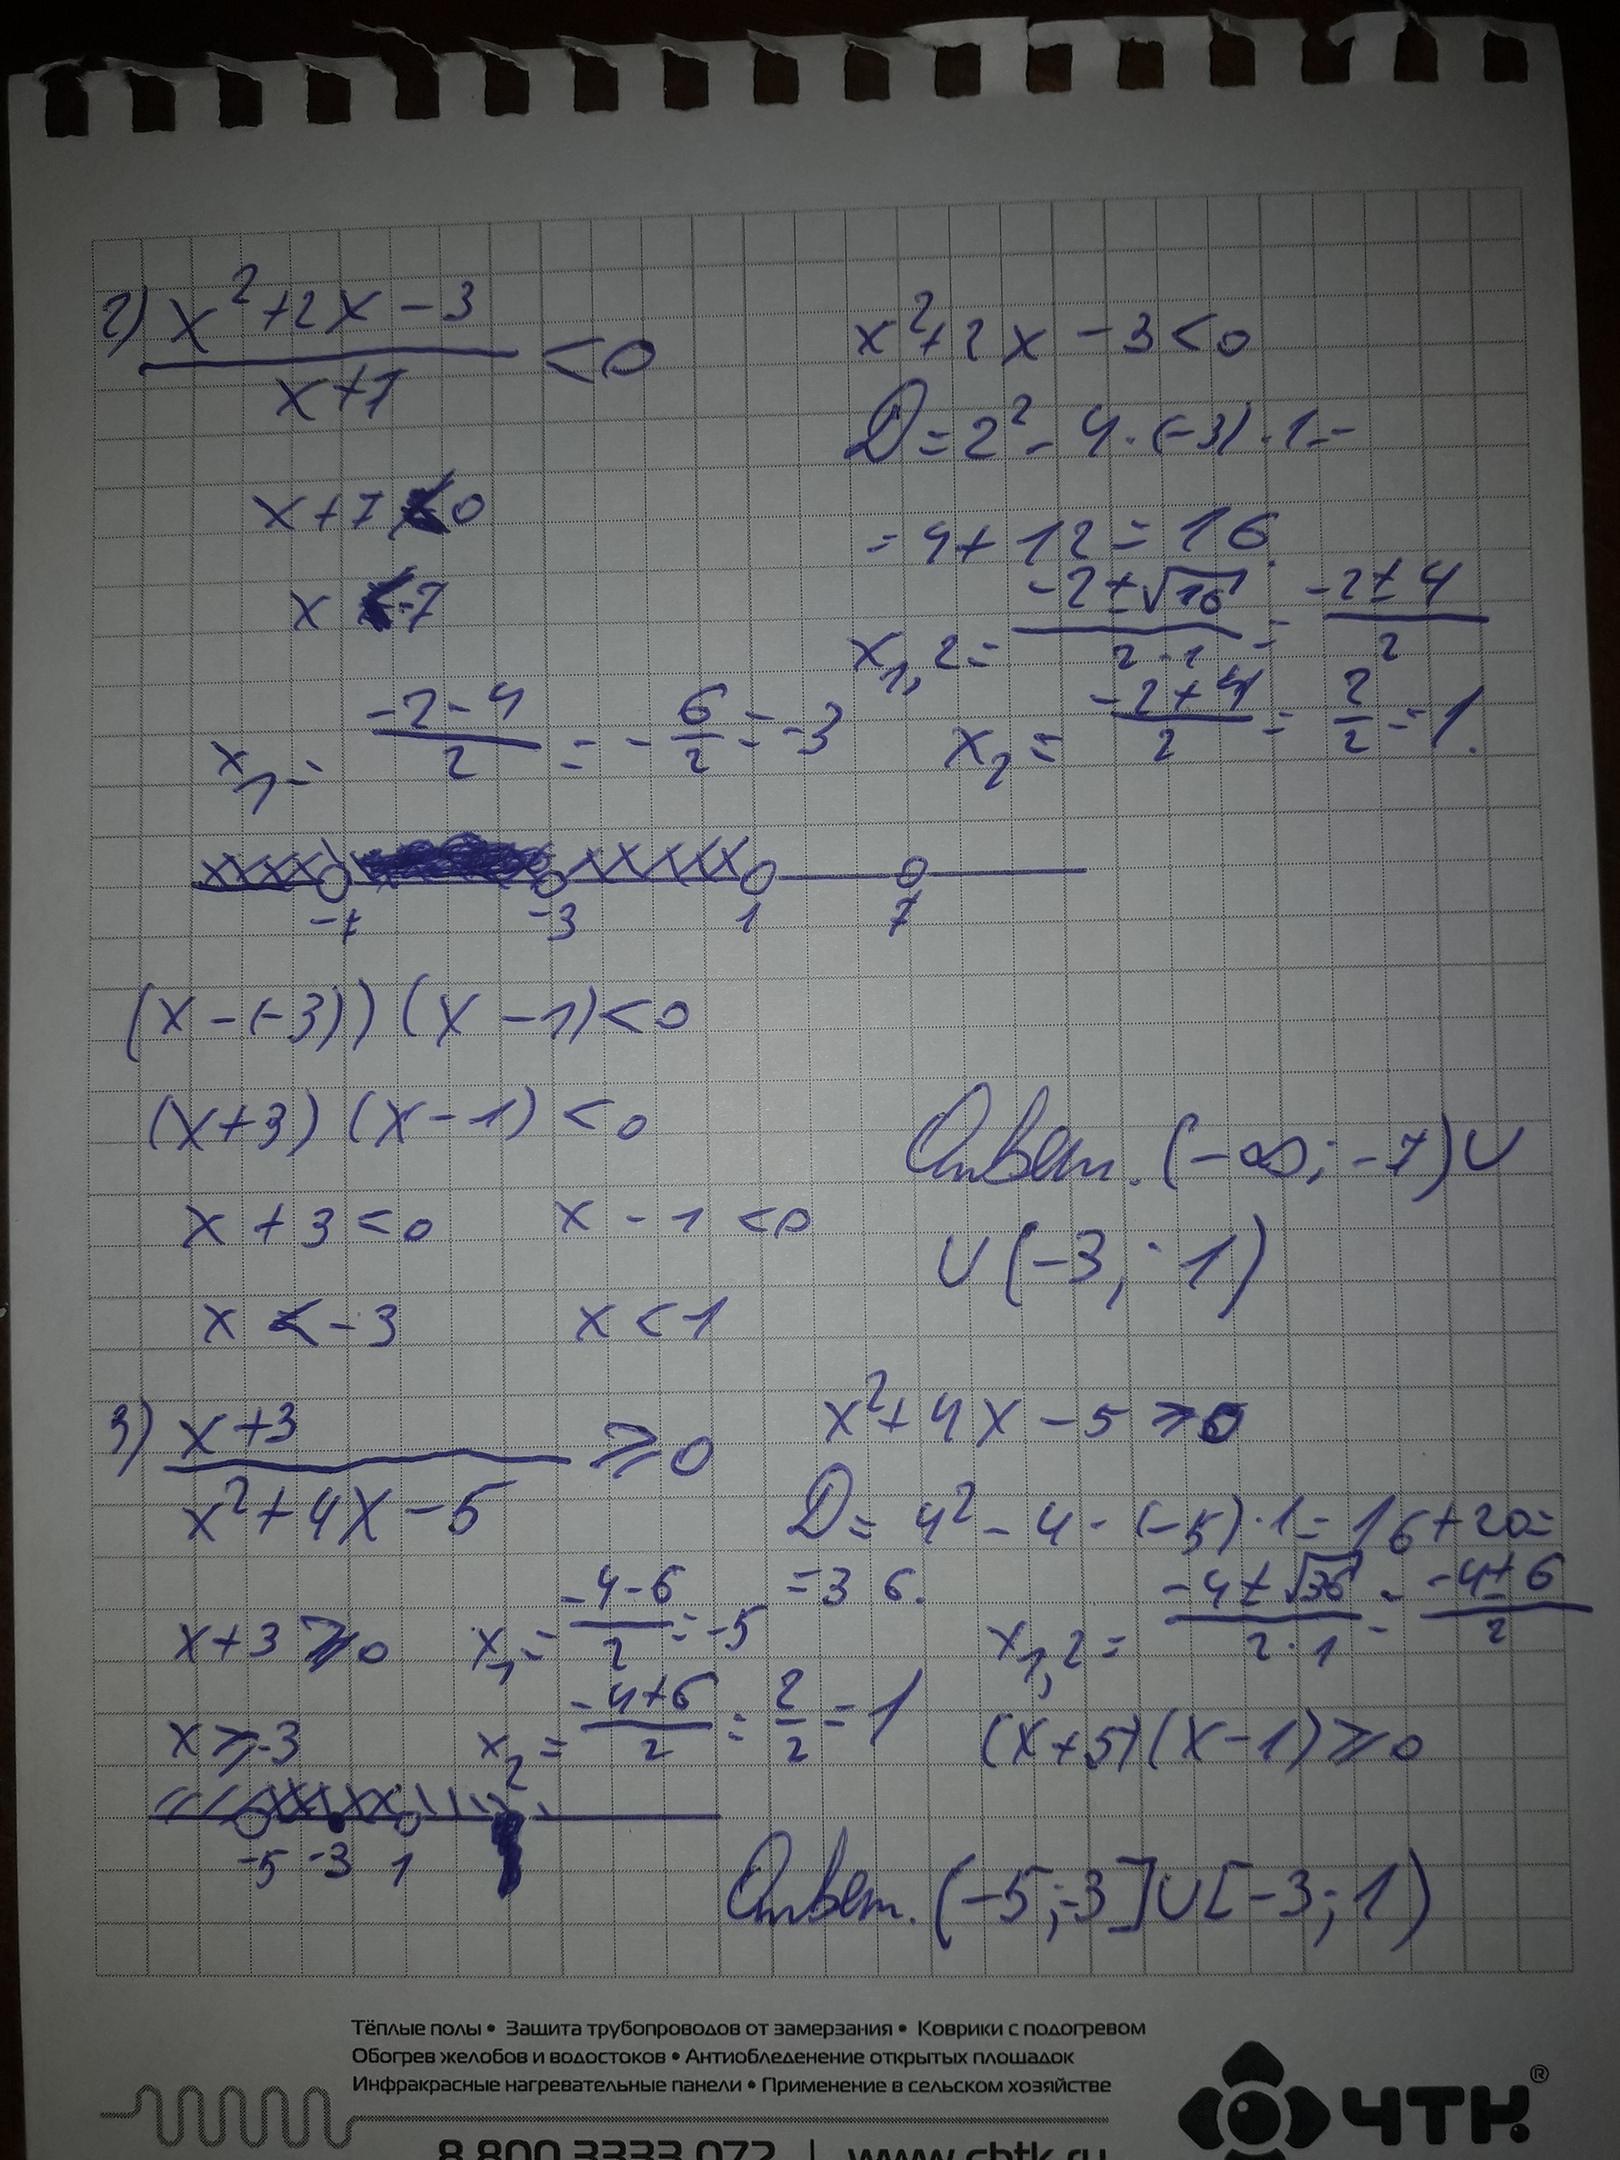 2) (x² + 2x - 3)/(x + 7) < 0
x² + 2x - 3 < 0
D = 2² - 4 · (-3) · 1 =
x + 7 < 0
= 4 + 12 = 16
x < -7
x₁,₂ = (-2 ± √16)/(2 · 1) = (-2 ± 4)/2
x₁ = (-2 - 4)/2 = -6/2 = -3
x₂ = (-2 + 4)/2 = 2/2 = 1.
-7 -3 1 7
(x - (-3)) (x - 1) < 0
(x + 3) (x - 1) < 0
Ответ. (-∞; -7) ∪
x + 3 < 0 x - 1 < 0
∪ (-3; 1)
x < -3 x < 1
3) (x + 3)/(x² + 4x - 5) ≥ 0
x² + 4x - 5 ≥ 0
D = 4² - 4 · (-5) · 1 = 16 + 20 =
= 36.
x + 3 ≥ 0
x₁ = (-4 - 6)/2 = -5
x₁,₂ = (-4 ± √36)/(2 · 1) = (-4 ± 6)/2
x ≥ -3
x₂ = (-4 + 6)/2 = 2/2 = 1
(x + 5) (x - 1) ≥ 0
-5 -3 1
Ответ. (-5; -3] ∪ [-3; 1)
Тёплые полы • Защита трубопроводов от замерзания • Коврики с подогревом
Обогрев желобов и водостоков • Антиобледенение открытых площадок
Инфракрасные нагревательные панели • Применение в сельском хозяйстве
ЧТК®
8 800 3333 072 | www.chtk.ru